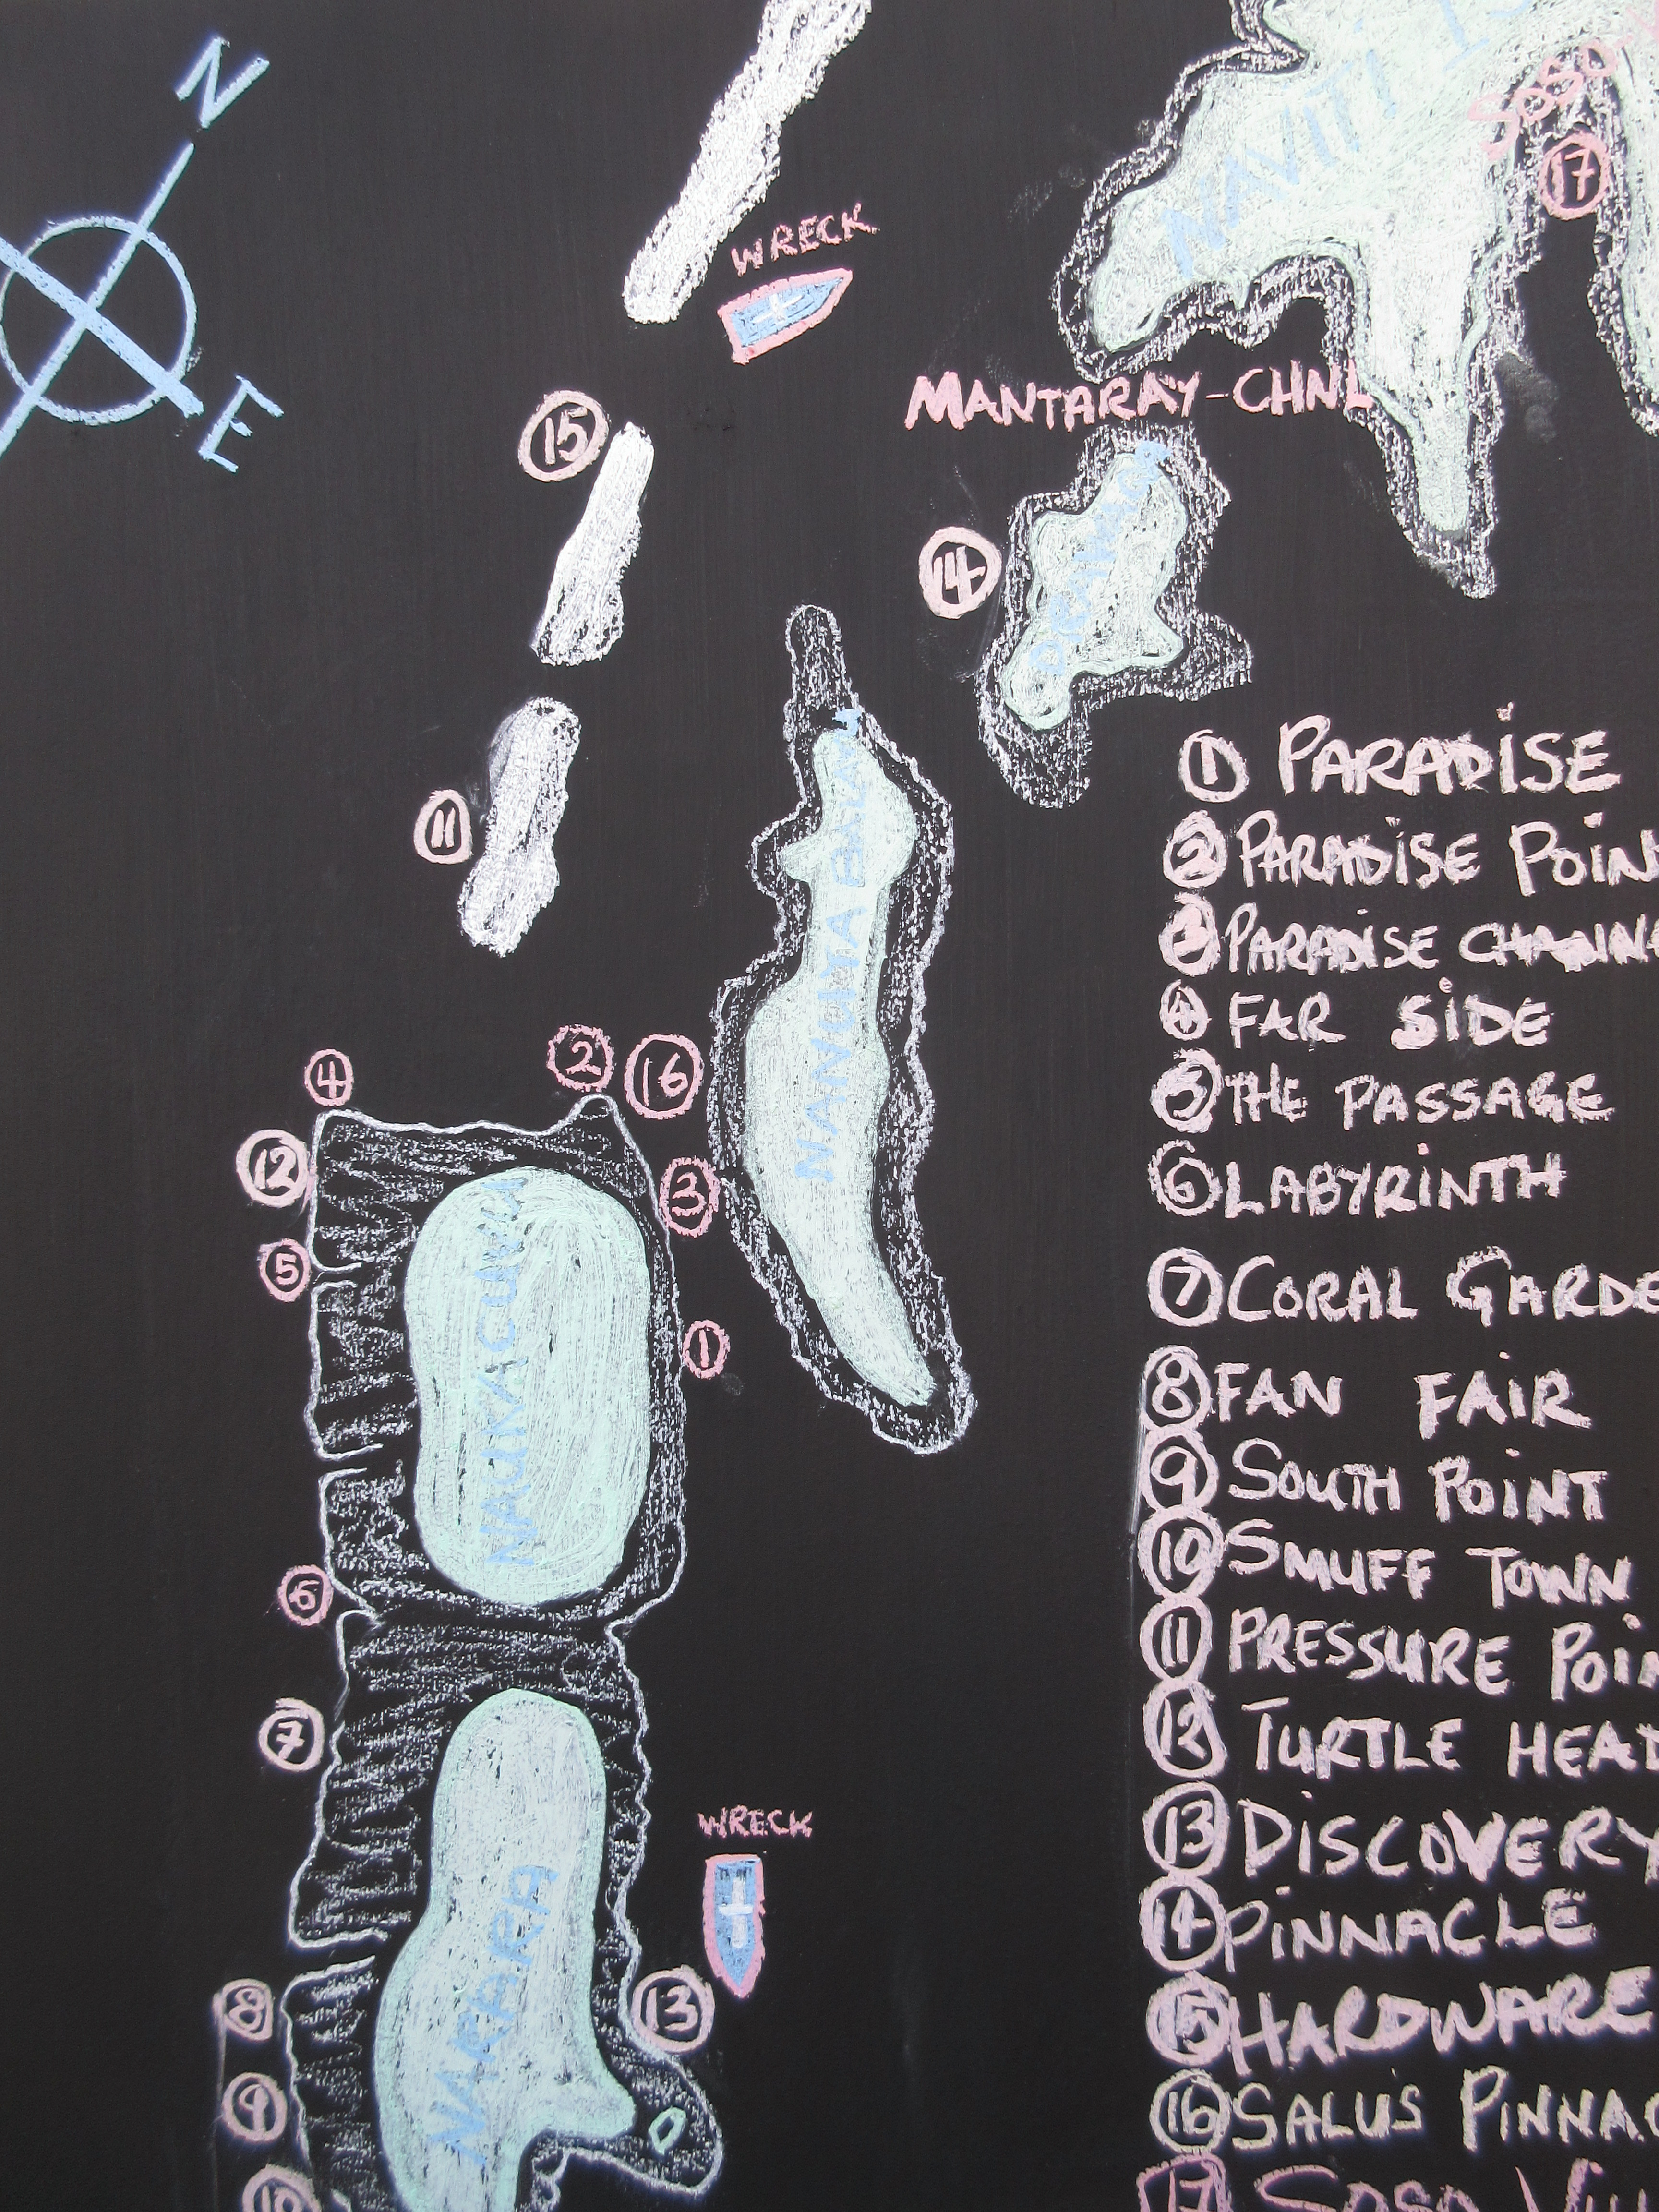 N
E
WRECK
NAVITI IS
SOSO
17
MANTARAY-CHNL
15
14
DRAWAQA
11
NANUYA BALAVU
① PARADISE
② PARADISE POIN
③ PARADISE CHANN
④ FAR SIDE
⑤ THE PASSAGE
⑥ LABYRINTH
⑦ CORAL GARDE
⑧ FAN FAIR
⑨ SOUTH POINT
⑩ SMUFF TOWN
⑪ PRESSURE POIN
⑫ TURTLE HEAD
⑬ DISCOVERY
⑭ PINNACLE
⑮ HARDWARE
⑯ SALU'S PINNAC
⑰ SOSO VILL
4
2
16
12
3
5
NAUKACUVU
1
6
7
WRECK
NARARA
8
13
9
10